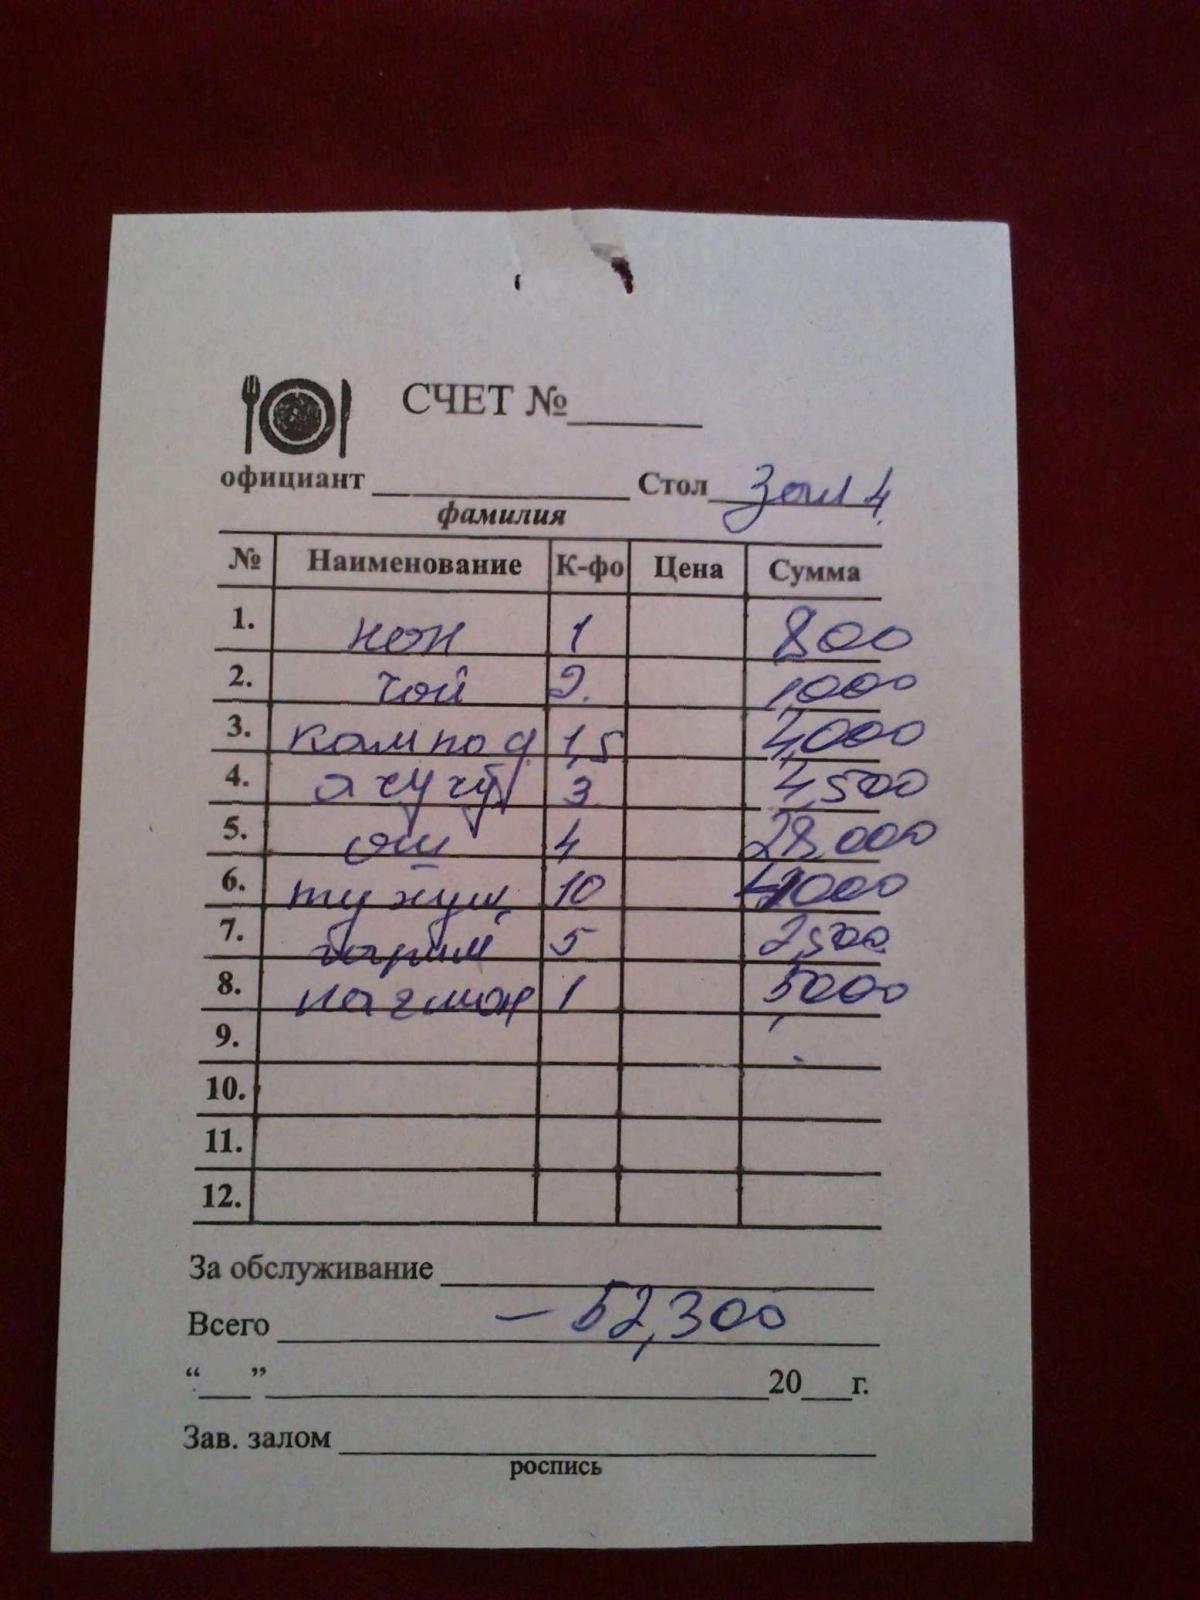 СЧЕТ №
официант Стол Зал 4
фамилия
№ Наименование К-фо Цена Сумма
1. нон 1 800
2. чой 2. 1,000
3. компод 1,5
4. ачучук 3 4,500
5. ош 4 28,000
6. 10
7. 5 2,500
8. лагмон 1 5000
9.
10.
11.
12.
За обслуживание
Всего — 52,300
“ ” 20 г.
Зав. залом
роспись